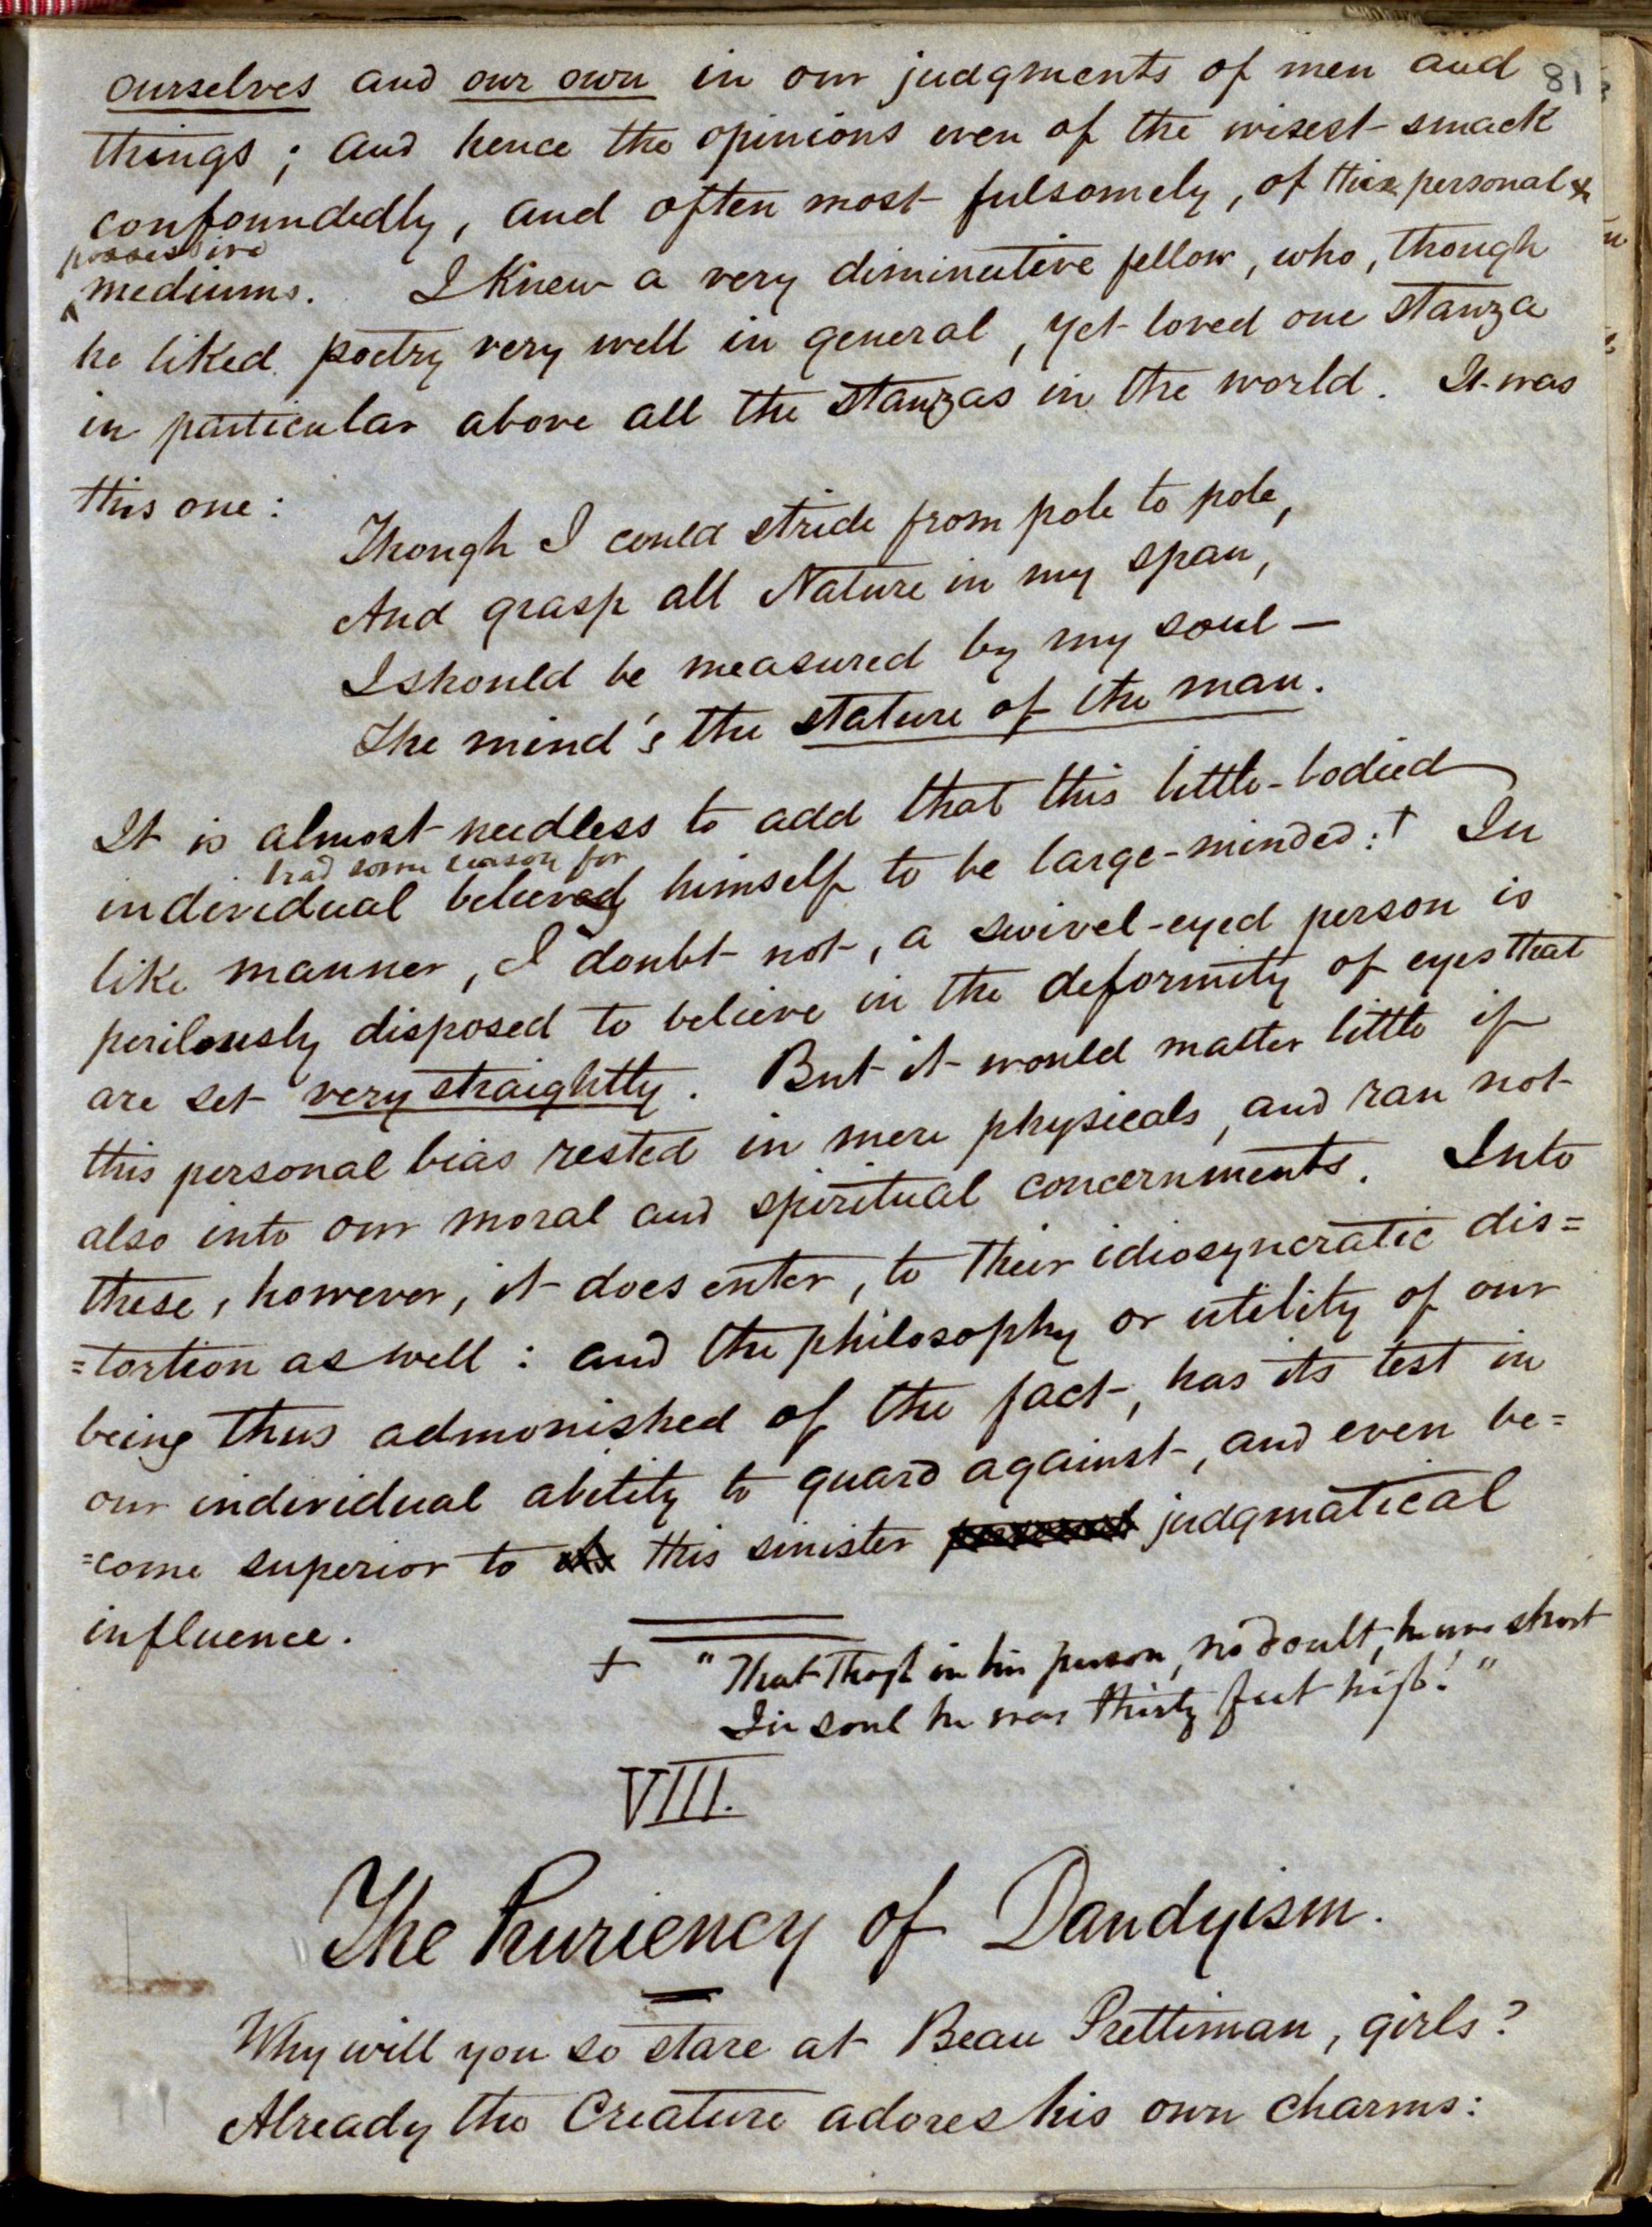 81
ourselves and our own in our judgments of men and
things; and hence the opinions even of the wisest smack
confoundedly, and often most fulsomely, of their personal &
possessive
mediums. I knew a very diminutive fellow, who, though
he liked poetry very well in general, yet loved one stanza
in particular above all the stanzas in the world. It was
this one:
Though I could stride from pole to pole,
And grasp all Nature in my span,
I should be measured by my soul —
The mind's the stature of the man.
It is almost needless to add that this little-bodied
had some reason for
individual believing himself to be large-minded:† In
like manner, I doubt not, a swivel-eyed person is
perilously disposed to believe in the deformity of eyes that
are set very straightly. But it would matter little if
this personal bias rested in mere physicals, and ran not
also into our moral and spiritual concernments. Into
these, however, it does enter, to their idiosyncratic dis=
=tortion as well: and the philosophy or utility of our
being thus admonished of the fact, has its test in
our individual ability to guard against, and even be=
=come superior to this sinister judgmatical
influence.
† "That though in his person, no doubt, he was short
In soul he was thirty feet high!"
VIII.
The Pruriency of Dandyism.
Why will you so stare at Beau Prettiman, girls?
Already the Creature adores his own charms: